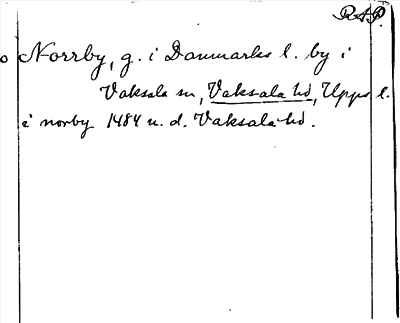 RAP.
o Norrby, g. i Danmarks l. by i
Vaksala sn, Vaksala hd, Upps l.
i norby 1484 u. d. Vaksala hd.